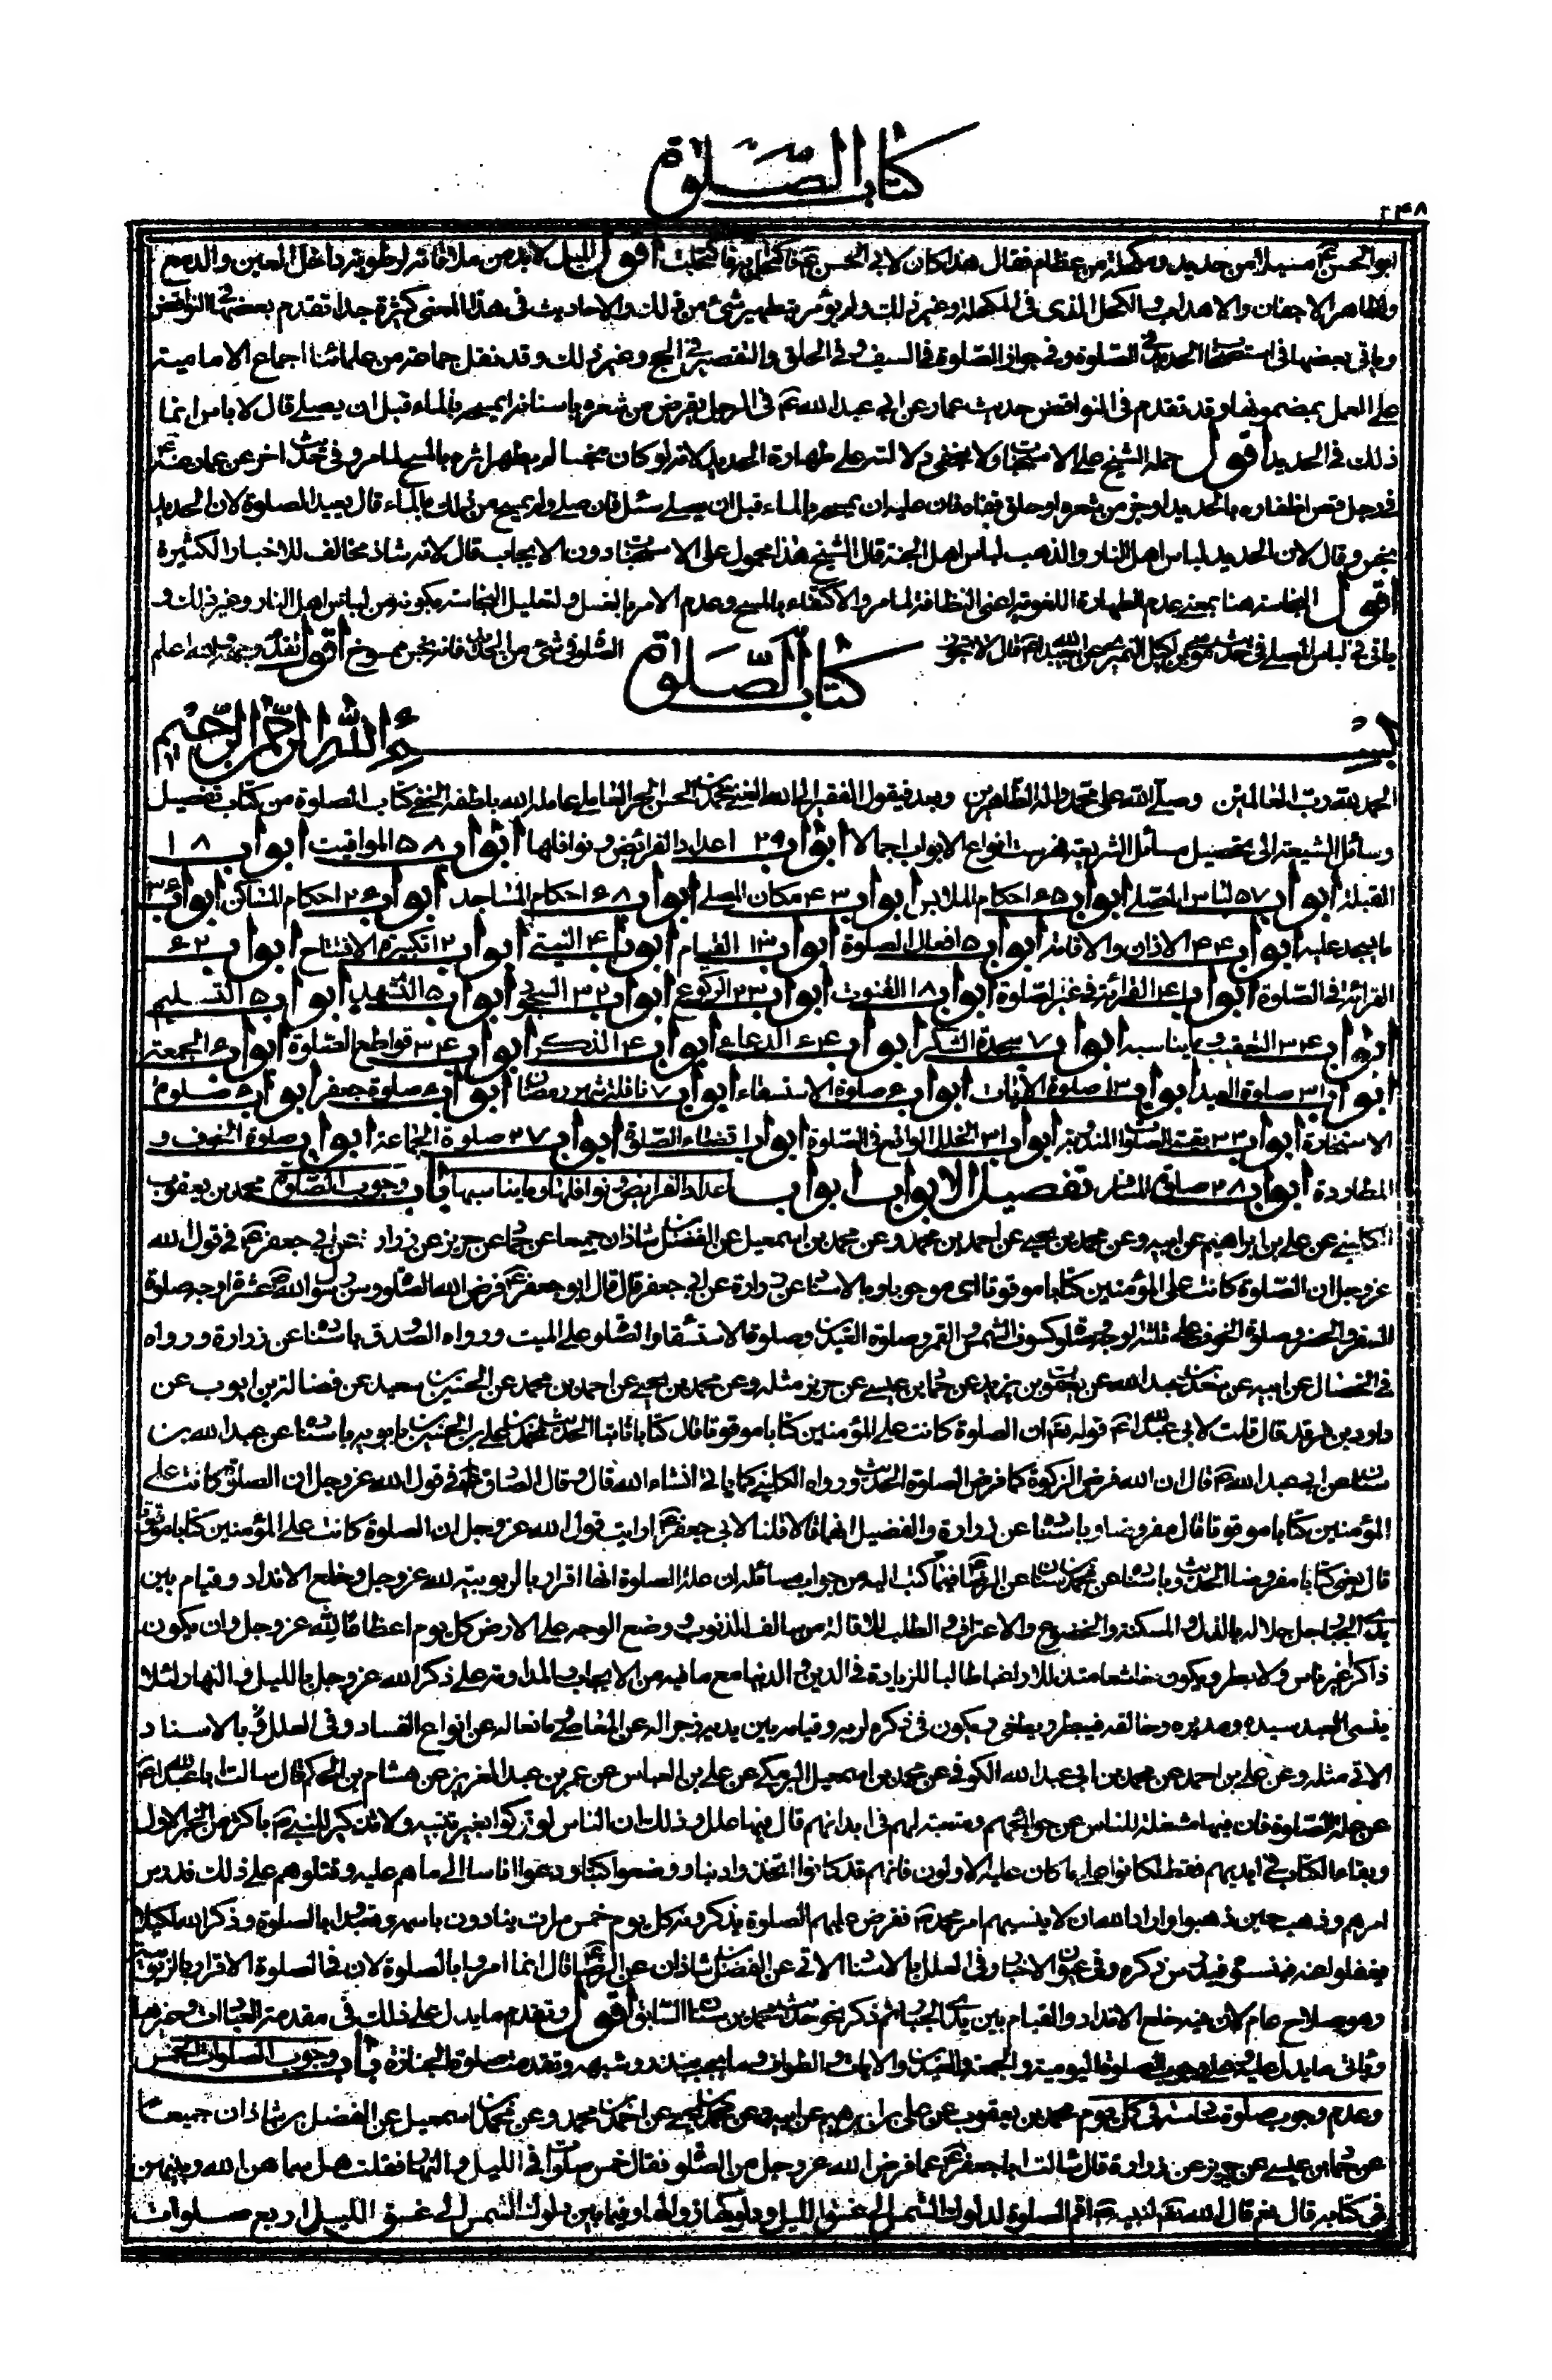 كتاب الصلوة
٢٤٨
ابو الحسن ع ميلا من حديد ومكحلة من عظام فقال هذا كان لابي الحسن ع فاكتحل به فاكتحلت اقول الميل لابد من ملاقاته لرطوبة داخل العين والدمع
وظاهر الاجفان والاهداب والكحل الذي في المكحلة وغير ذلك ولم يؤمر بتطهير شئ من ذلك والاحاديث في هذا المعنى كثيرة جدا تقدم بعضها في النواقض
وياتي بعضها في استصحاب الحديد في الصلوة وفي جواز الصلوة في السيف وفي الحلق والتقصير في الحج وغير ذلك وقد نقل جماعة من علمائنا اجماع الامامية
على العمل بمضمونها وقد تقدم في النواقض حديث عمار عن ابي عبد الله ع في الرجل يقرض من شعره باسنانه ايمسحه بالماء قبل ان يصلي قال لا باس انما
ذلك في الحديد اقول حمله الشيخ على الاستحباب ولا يخفى دلالته على طهارة الحديد لانه لو كان نجسا لم يطهر اثره بالمسح لما مر وفي حديث اخر عن عمار عنه ع
في رجل قص اظفاره بالحديد او جز من شعره او حلق قفاه فان عليه ان يمسحه بالماء قبل ان يصلي سئل فان صلى ولم يمسح من ذلك بالماء قال يعيد الصلوة لان الحديد
نجس وقال لان الحديد لباس اهل النار والذهب لباس اهل الجنة قال الشيخ هذا محمول على الاستحباب دون الايجاب قال لانه شاذ مخالف للاخبار الكثيرة
اقول النجاسة هنا بمعنى عدم الطهارة اللغوية اعني النظافة لما مر والاكتفاء بالمسح وعدم الامر بالغسل ولتعليل النجاسة بكونه من لباس اهل النار وغير ذلك و
ياتي في لباس المصلي في حديث موسى بن اكيل النميري عن ابي عبد الله ع قال لا تجوز الصلوة في شئ من الحديد فانه نجس ممسوخ اقول تقدم وجهه والله اعلم
كتاب الصلوة
بسم الله الرحمن الرحيم
الحمد لله رب العالمين وصلى الله على محمد واله الطاهرين وبعد فيقول الفقير الى الله الغني محمد بن الحسن الحر العاملي عامله الله بلطفه الخفي كتاب الصلوة من كتاب تفصيل
وسائل الشيعة الى تحصيل مسائل الشريعة فهرست انواع الابواب اجمالا ابواب ٢٩ اعداد الفرائض ونوافلها ابواب ٥٨ المواقيت ابواب ١٨
القبلة ابواب ٥٧ لباس المصلي ابواب ٥٦ احكام الملابس ابواب ٤٣ مكان المصلي ابواب ٦٨ احكام المساجد ابواب ٢٦ احكام المساكن ابواب
ما يسجد عليه ابواب ٤٤ الاذان والاقامة ابواب ٥ افعال الصلوة ابواب ١٣ القيام ابواب ٤ النية ابواب ١٢ تكبيرة الافتتاح ابواب
القراءة في الصلوة ابواب القراءة في غير الصلوة ابواب ١٨ القنوت ابواب الركوع ابواب السجود ابواب ٥ التشهد ابواب ٥ التسليم
ابواب ٣٤ التعقيب وما يناسبه ابواب ٧ سجدة الشكر ابواب الدعاء ابواب الذكر ابواب قواطع الصلوة ابواب الجمعة
ابواب صلوة العيد ابواب صلوة الآيات ابواب صلوة الاستسقاء ابواب ٧ نافلة شهر رمضان ابواب صلوة جعفر ابواب صلوة
الاستخارة ابواب بقية الصلوات المندوبة ابواب الخلل الواقع في الصلوة ابواب قضاء الصلوة ابواب صلوة الجماعة ابواب صلوة الخوف و
المطاردة ابواب صلوة المسافر تفصيل الابواب ابواب اعداد الفرائض ونوافلها وما يناسبها باب وجوب الصلوة محمد بن يعقوب
الكليني عن علي بن ابراهيم عن ابيه وعن محمد بن يحيى عن احمد بن محمد وعن محمد بن اسمعيل عن الفضل بن شاذان جميعا عن حماد عن حريز عن زرارة عن ابي جعفر ع في قول الله
عز وجل ان الصلوة كانت على المؤمنين كتابا موقوتا اي موجوبا وبالاسناد عن زرارة عن ابي جعفر قال قال ابو جعفر ع فرض الله الصلوة وسن رسول الله ص عشرة اوجه صلوة
السفر والحضر وصلوة الخوف على ثلثة اوجه وصلوة كسوف الشمس والقمر وصلوة العيدين وصلوة الاستسقاء والصلوة على الميت ورواه الصدوق باسناده عن زرارة ورواه
في الخصال عن ابيه عن سعد بن عبد الله عن يعقوب بن يزيد عن حماد بن عيسى عن حريز مثله وعن محمد بن يحيى عن احمد بن محمد عن الحسين بن سعيد عن فضالة بن ايوب عن
داود بن فرقد قال قلت لابي عبد الله ع قوله تعالى ان الصلوة كانت على المؤمنين كتابا موقوتا قال كتابا ثابتا الحديث محمد بن علي بن الحسين بن بابويه باسناده عن عبد الله بن
سنان عن ابي عبد الله ع قال ان الله فرض الزكوة كما فرض الصلوة الحديث ورواه الكليني كما ياتي انشاء الله قال وقال الصادق ع في قول الله عز وجل ان الصلوة كانت على
المؤمنين كتابا موقوتا قال مفروضا وباسناده عن زرارة والفضيل انهما قالا قلنا لابي جعفر ع ارايت قول الله عز وجل ان الصلوة كانت على المؤمنين كتابا موقوتا
قال يعني كتابا مفروضا الحديث وباسناده عن محمد بن سنان عن الرضا ع فيما كتب اليه من جواب مسائله ان علة الصلوة انها اقرار بالربوبية لله عز وجل وخلع الانداد وقيام بين
يدي الجبار جل جلاله بالذل والمسكنة والخضوع والاعتراف والطلب للاقالة من سالف الذنوب ووضع الوجه على الارض كل يوم اعظاما لله عز وجل وان يكون
ذاكرا غير ناس ولا بطر ويكون خاشعا متذللا راغبا طالبا للزيادة في الدين والدنيا مع ما فيه من الايجاب والمداومة على ذكر الله عز وجل بالليل والنهار لئلا
ينسى العبد سيده ومدبره وخالقه فيبطر ويطغى ويكون في ذكره لربه وقيامه بين يديه زجرا له عن المعاصي ومانعا له عن انواع الفساد وفي العلل بالاسناد
الاتي مثله وعن علي بن احمد عن محمد بن ابي عبد الله الكوفي عن محمد بن اسمعيل البرمكي عن علي بن العباس عن عمر بن عبد العزيز عن هشام بن الحكم قال سالت ابا عبد الله ع
عن علة الصلوة فان فيها مشغلة للناس عن حوائجهم ومتعبة لهم في ابدانهم قال فيها علل وذلك ان الناس لو تركوا بغير تنبيه ولا تذكير للنبي ص باكثر من الخبر الاول
وبقاء الكتاب في ايديهم فقط لكانوا على ما كان عليه الاولون فانهم قد كانوا اتخذوا دينا ووضعوا كتبا ودعوا اناسا الى ما هم عليه وقتلوهم على ذلك فدرس
امرهم وذهب حين ذهبوا واراد الله ان لا ينسيهم امر محمد ص ففرض عليهم الصلوة يذكرونه كل يوم خمس مرات ينادون باسمه وتعبدوا بالصلوة وذكر الله لكيلا
يغفلوا عنه فينسوه فيدرس ذكره وفي عيون الاخبار وفي العلل بالاسناد الاتي عن الفضل بن شاذان عن الرضا ع قال انما امروا بالصلوة لان في الصلوة الاقرار بالربوبية
وهو صلاح عام لان فيه خلع الانداد والقيام بين يدي الجبار ثم ذكر نحو حديث محمد بن سنان السابق اقول وتقدم ما يدل على ذلك في مقدمة العبادات وغيرها
وياتي ما يدل عليه وعلى وجوب الصلوة اليومية والجمعة والعيدين والايات والطواف وما يجب بنذر وشبهه وتقدمت صلوة الجنازة باب وجوب الصلوات الخمس
وعدم وجوب صلوة سادسة في كل يوم محمد بن يعقوب عن علي بن ابرهيم عن ابيه وعن محمد بن يحيى عن احمد بن محمد وعن محمد بن اسمعيل عن الفضل بن شاذان جميعا
عن حماد بن عيسى عن حريز عن زرارة قال سالت ابا جعفر ع عما فرض الله عز وجل من الصلوة فقال خمس صلوات في الليل والنهار فقلت هل سماهن الله وبينهن
في كتابه قال نعم قال الله تعالى لنبيه ص اقم الصلوة لدلوك الشمس الى غسق الليل ودلوكها زوالها وفيما بين دلوك الشمس الى غسق الليل اربع صلوات